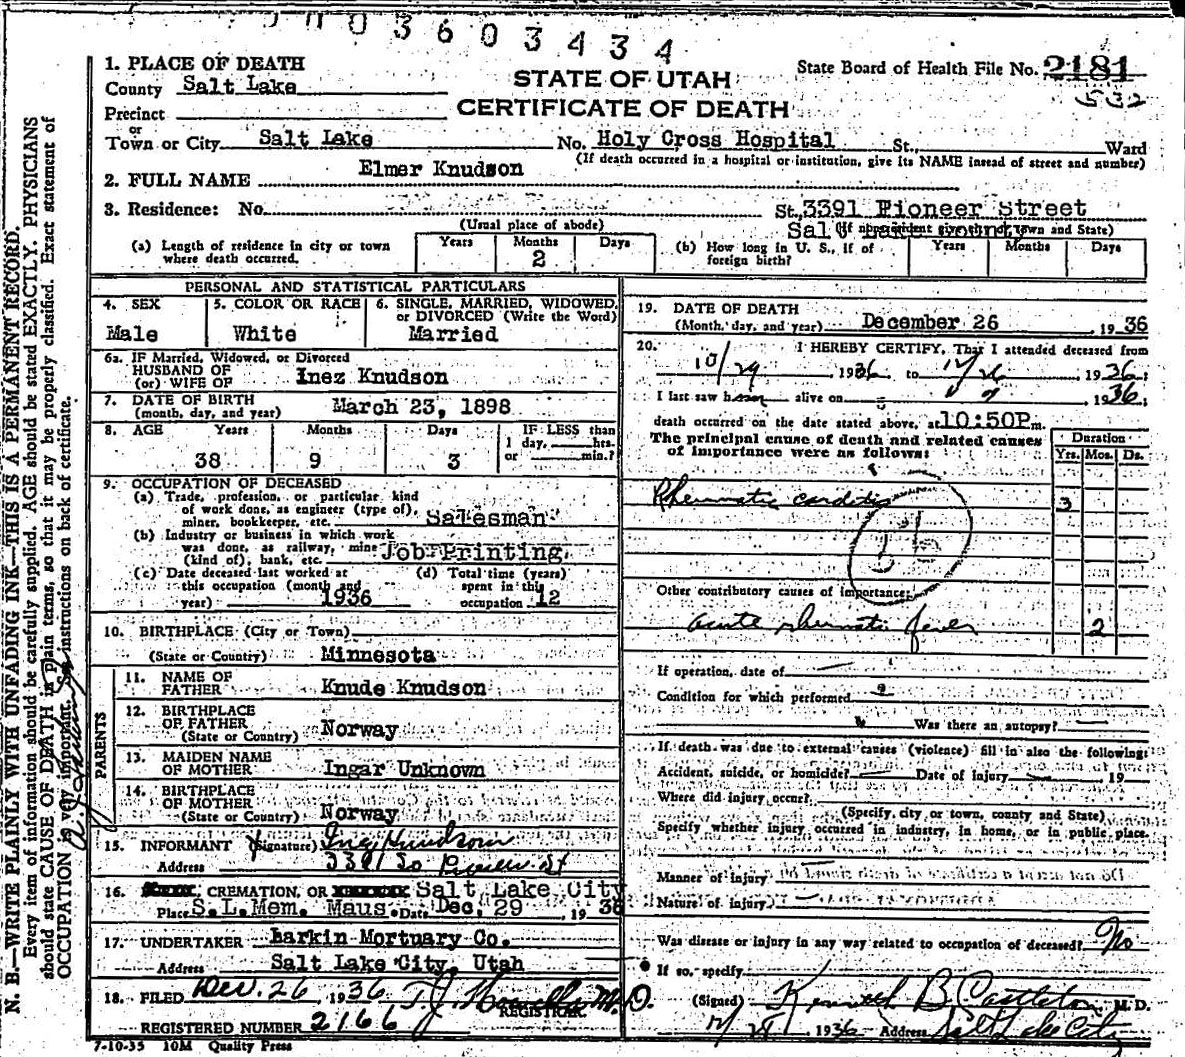 003603434
1. PLACE OF DEATH
County Salt Lake
STATE OF UTAH
CERTIFICATE OF DEATH
State Board of Health File No. 2181
532
Precinct
or
Town or City Salt Lake No. Holy Cross Hospital St., Ward
(If death occurred in a hospital or institution, give its NAME instead of street and number)
2. FULL NAME Elmer Knudson
3. Residence: No. St., 3391 Pioneer Street
(Usual place of abode) Salt Lake County
(a) Length of residence in city or town where death occurred. Years Months 2 Days
(b) How long in U. S., if of foreign birth? Years Months Days
PERSONAL AND STATISTICAL PARTICULARS
4. SEX Male
5. COLOR OR RACE White
6. SINGLE, MARRIED, WIDOWED, or DIVORCED (Write the Word) Married
6a. IF Married, Widowed, or Divorced
HUSBAND OF
(or) WIFE OF Inez Knudson
7. DATE OF BIRTH
(month, day, and year) March 23, 1898
8. AGE Years Months Days IF LESS than
1 day, hrs.
or min.?
38 9 3
9. OCCUPATION OF DECEASED
(a) Trade, profession, or particular kind
of work done, as engineer (type of),
miner, bookkeeper, etc. Salesman
(b) Industry or business in which work
was done, as railway, mine
(kind of), bank, etc. Job Printing
(c) Date deceased last worked at
this occupation (month and
year) 1936
(d) Total time (years)
spent in this
occupation 12
10. BIRTHPLACE (City or Town)
(State or Country) Minnesota
PARENTS
11. NAME OF
FATHER Knude Knudson
12. BIRTHPLACE
OF FATHER
(State or Country) Norway
13. MAIDEN NAME
OF MOTHER Ingar Unknown
14. BIRTHPLACE
OF MOTHER
(State or Country) Norway
15. INFORMANT (Signature) Knudson
Address 3391 So St
16. CREMATION, OR Salt Lake City
Place S.L.Mem. Maus. Date Dec. 29 1936
17. UNDERTAKER Larkin Mortuary Co.
Address Salt Lake City, Utah
18. FILED Dec. 26 1936 M.D.
REGISTRAR
REGISTERED NUMBER 2166
7-10-35 10M Quality Press
19. DATE OF DEATH
(Month, day, and year) December 26, 1936
20. I HEREBY CERTIFY, That I attended deceased from
10/29 1936 to 12/26 1936;
I last saw h alive on 1936;
death occurred on the date stated above, at 10:50P m.
The principal cause of death and related causes
of importance were as follows:
Duration
Yrs. Mos. Ds.
Rheumatic carditis 3
Other contributory causes of importance:
acute rheumatic fever 2
If operation, date of
Condition for which performed
Was there an autopsy?
If death was due to external causes (violence) fill in also the following:
Accident, suicide, or homicide? Date of injury 19
Where did injury occur?
(Specify city or town, county and State)
Specify whether injury occurred in industry, in home, or in public place.
Manner of injury
Nature of injury
Was disease or injury in any way related to occupation of deceased? No
If so, specify
(Signed) Kenneth B Castleton M. D.
12/28/ 1936 Address Salt Lake City
N. B.—WRITE PLAINLY WITH UNFADING INK—THIS IS A PERMANENT RECORD.
Every item of information should be carefully supplied. AGE should be stated EXACTLY. PHYSICIANS
should state CAUSE OF DEATH in plain terms, so that it may be properly classified. Exact statement of
OCCUPATION is very important. See instructions on back of certificate.